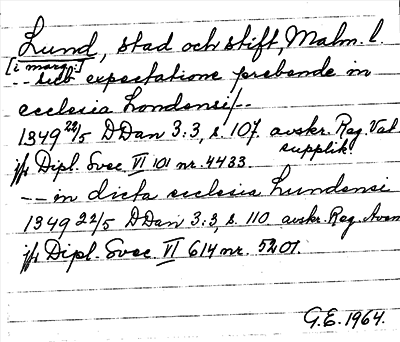 Lund, stad och stift, Malm. l.
[i marg.:]
-- sub expectatione prebende in
ecclesia Londensi/--
1349 22/5 DDan 3:3, s. 107. avskr. Reg. Vat
supplik.
jfr Dipl. Svec VI 101 nr. 4433.
-- in dicta ecclesia Lundensi
1349 22/5 DDan 3:3, s. 110. avskr. Reg. Aven
jfr Dipl. Svec VI 614 nr. 5201.
G.E. 1964.